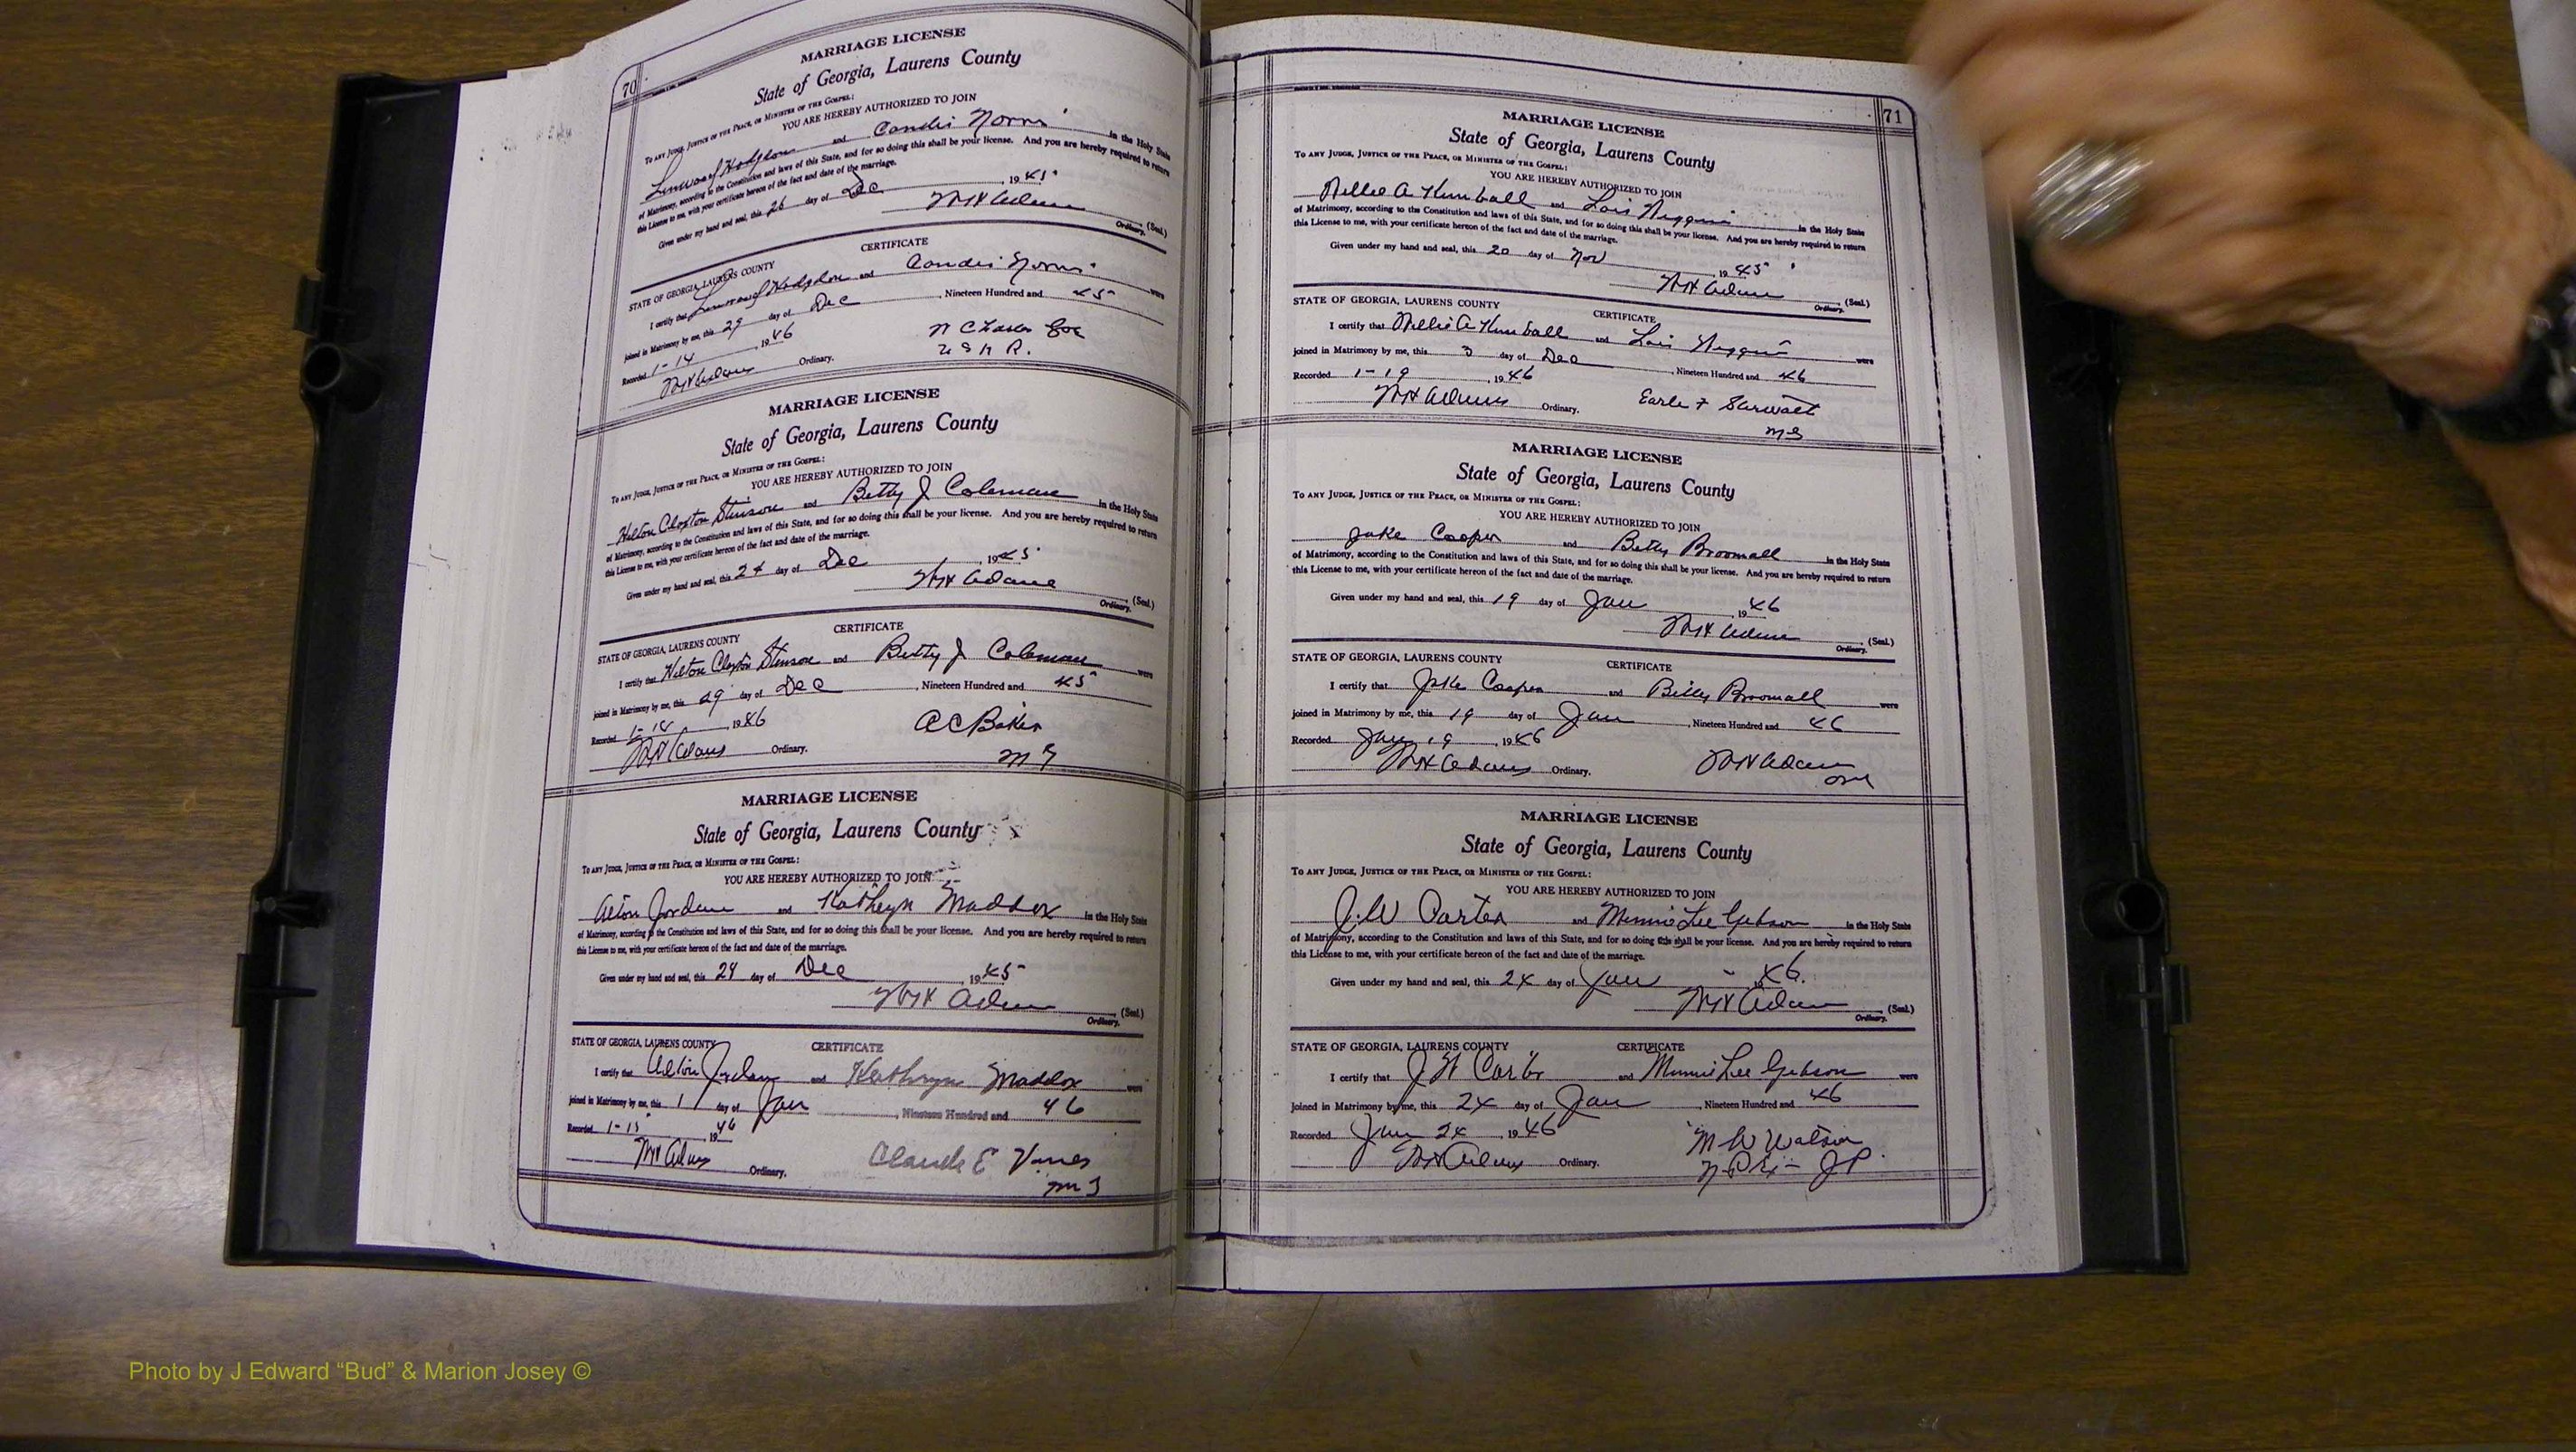 70
MARRIAGE LICENSE
State of Georgia, Laurens County
TO ANY JUDGE, JUSTICE OF THE PEACE, OR MINISTER OF THE GOSPEL:
YOU ARE HEREBY AUTHORIZED TO JOIN
and Norris in the Holy State
of Matrimony, according to the Constitution and laws of this State, and for so doing this shall be your license. And you are hereby required to return
this License to me, with your certificate hereon of the fact and date of the marriage.
Given under my hand and seal, this 26 day of Dec, 1945
(Seal.)
Ordinary.
CERTIFICATE
STATE OF GEORGIA, LAURENS COUNTY
I certify that and Norris were
joined in Matrimony by me, this 29 day of Dec, Nineteen Hundred and 45
Recorded 1-14, 1946
Ordinary.
MARRIAGE LICENSE
State of Georgia, Laurens County
TO ANY JUDGE, JUSTICE OF THE PEACE, OR MINISTER OF THE GOSPEL:
YOU ARE HEREBY AUTHORIZED TO JOIN
Hilton Claxton Stinson and Betty J Coleman in the Holy State
of Matrimony, according to the Constitution and laws of this State, and for so doing this shall be your license. And you are hereby required to return
this License to me, with your certificate hereon of the fact and date of the marriage.
Given under my hand and seal, this 24 day of Dec, 1945
(Seal.)
Ordinary.
CERTIFICATE
STATE OF GEORGIA, LAURENS COUNTY
I certify that Hilton Claxton Stinson and Betty J Coleman were
joined in Matrimony by me, this 29 day of Dec, Nineteen Hundred and 45
Recorded 1-14, 1946
A C Baker
Ordinary.
M G
MARRIAGE LICENSE
State of Georgia, Laurens County
TO ANY JUDGE, JUSTICE OF THE PEACE, OR MINISTER OF THE GOSPEL:
YOU ARE HEREBY AUTHORIZED TO JOIN
Alton Jordan and Kathryn Maddox in the Holy State
of Matrimony, according to the Constitution and laws of this State, and for so doing this shall be your license. And you are hereby required to return
this License to me, with your certificate hereon of the fact and date of the marriage.
Given under my hand and seal, this 29 day of Dec, 1945
(Seal.)
Ordinary.
CERTIFICATE
STATE OF GEORGIA, LAURENS COUNTY
I certify that Alton Jordan and Kathryn Maddox were
joined in Matrimony by me, this 1 day of Jan, Nineteen Hundred and 46
Recorded 1-15, 1946
Claude E Vines
Ordinary.
M G
71
MARRIAGE LICENSE
State of Georgia, Laurens County
TO ANY JUDGE, JUSTICE OF THE PEACE, OR MINISTER OF THE GOSPEL:
YOU ARE HEREBY AUTHORIZED TO JOIN
A Kimball and Lois in the Holy State
of Matrimony, according to the Constitution and laws of this State, and for so doing this shall be your license. And you are hereby required to return
this License to me, with your certificate hereon of the fact and date of the marriage.
Given under my hand and seal, this 20 day of Nov, 1945
(Seal.)
Ordinary.
CERTIFICATE
STATE OF GEORGIA, LAURENS COUNTY
I certify that A Kimball and Lois were
joined in Matrimony by me, this 3 day of Dec, Nineteen Hundred and 46
Recorded 1-19, 1946
Earle F Stewart
Ordinary.
M G
MARRIAGE LICENSE
State of Georgia, Laurens County
TO ANY JUDGE, JUSTICE OF THE PEACE, OR MINISTER OF THE GOSPEL:
YOU ARE HEREBY AUTHORIZED TO JOIN
Jake Cooper and Betty Broomall in the Holy State
of Matrimony, according to the Constitution and laws of this State, and for so doing this shall be your license. And you are hereby required to return
this License to me, with your certificate hereon of the fact and date of the marriage.
Given under my hand and seal, this 19 day of Jan, 1946
(Seal.)
Ordinary.
STATE OF GEORGIA, LAURENS COUNTY CERTIFICATE
I certify that Jake Cooper and Betty Broomall were
joined in Matrimony by me, this 19 day of Jan, Nineteen Hundred and 46
Recorded Jan 19, 1946
Ordinary.
MARRIAGE LICENSE
State of Georgia, Laurens County
TO ANY JUDGE, JUSTICE OF THE PEACE, OR MINISTER OF THE GOSPEL:
YOU ARE HEREBY AUTHORIZED TO JOIN
J. W Carter and Minnie Lee Gibson in the Holy State
of Matrimony, according to the Constitution and laws of this State, and for so doing this shall be your license. And you are hereby required to return
this License to me, with your certificate hereon of the fact and date of the marriage.
Given under my hand and seal, this 24 day of Jan 46
(Seal.)
Ordinary.
STATE OF GEORGIA, LAURENS COUNTY CERTIFICATE
I certify that J W Carter and Minnie Lee Gibson were
joined in Matrimony by me, this 24 day of Jan, Nineteen Hundred and 46
Recorded Jan 24, 1946
M W Watson
Ordinary.
J P.
Photo by J Edward “Bud” & Marion Josey ©